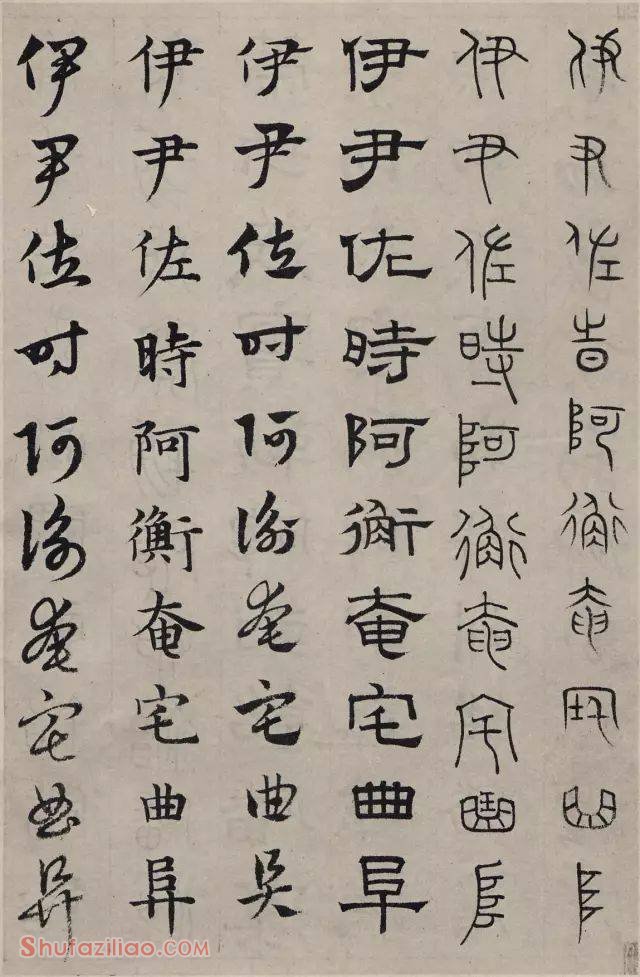 伊尹佐時阿衡奄宅曲阜
伊尹佐時阿衡奄宅曲阜
伊尹佐時阿衡奄宅曲阜
伊尹佐时阿衡奄宅曲阜
伊尹佐時阿衡奄宅曲阜
伊尹佐时阿衡奄宅曲阜
Shufaziliao.COM